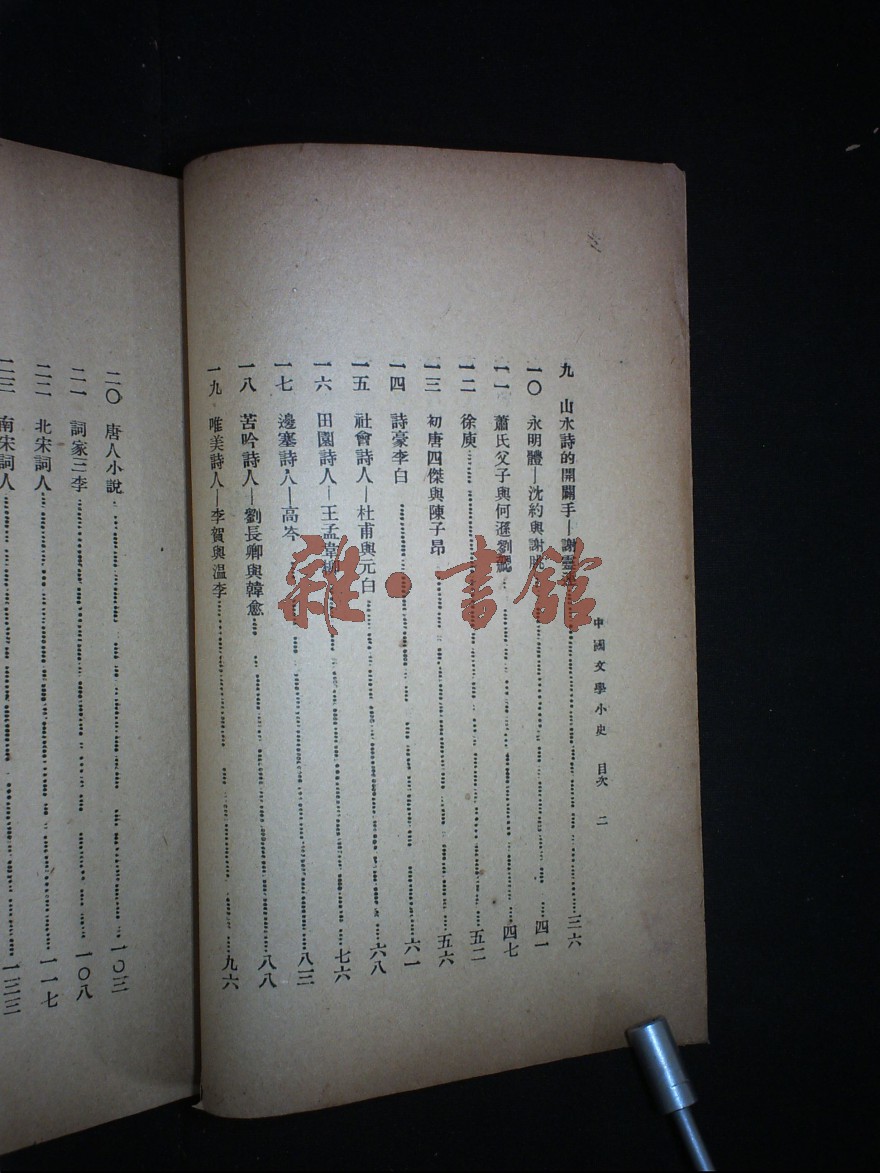 中國文學小史 目次 二
九 山水詩的開闢手—謝靈運 三六
一〇 永明體—沈約與謝朓 四一
一一 蕭氏父子與何遜劉 四七
一二 徐庾 五二
一三 初唐四傑與陳子昂 五六
一四 詩豪李白 六一
一五 社會詩人—杜甫與元白 六八
一六 田園詩人—王孟韋柳 七六
一七 邊塞詩人—高岑 八三
一八 苦吟詩人—劉長卿與韓愈 八八
一九 唯美詩人—李賀與溫李 九六
二〇 唐人小說 一〇三
二一 詞家三李 一〇八
二二 北宋詞人 一一七
二三 南宋詞人 一三三
雜·書館